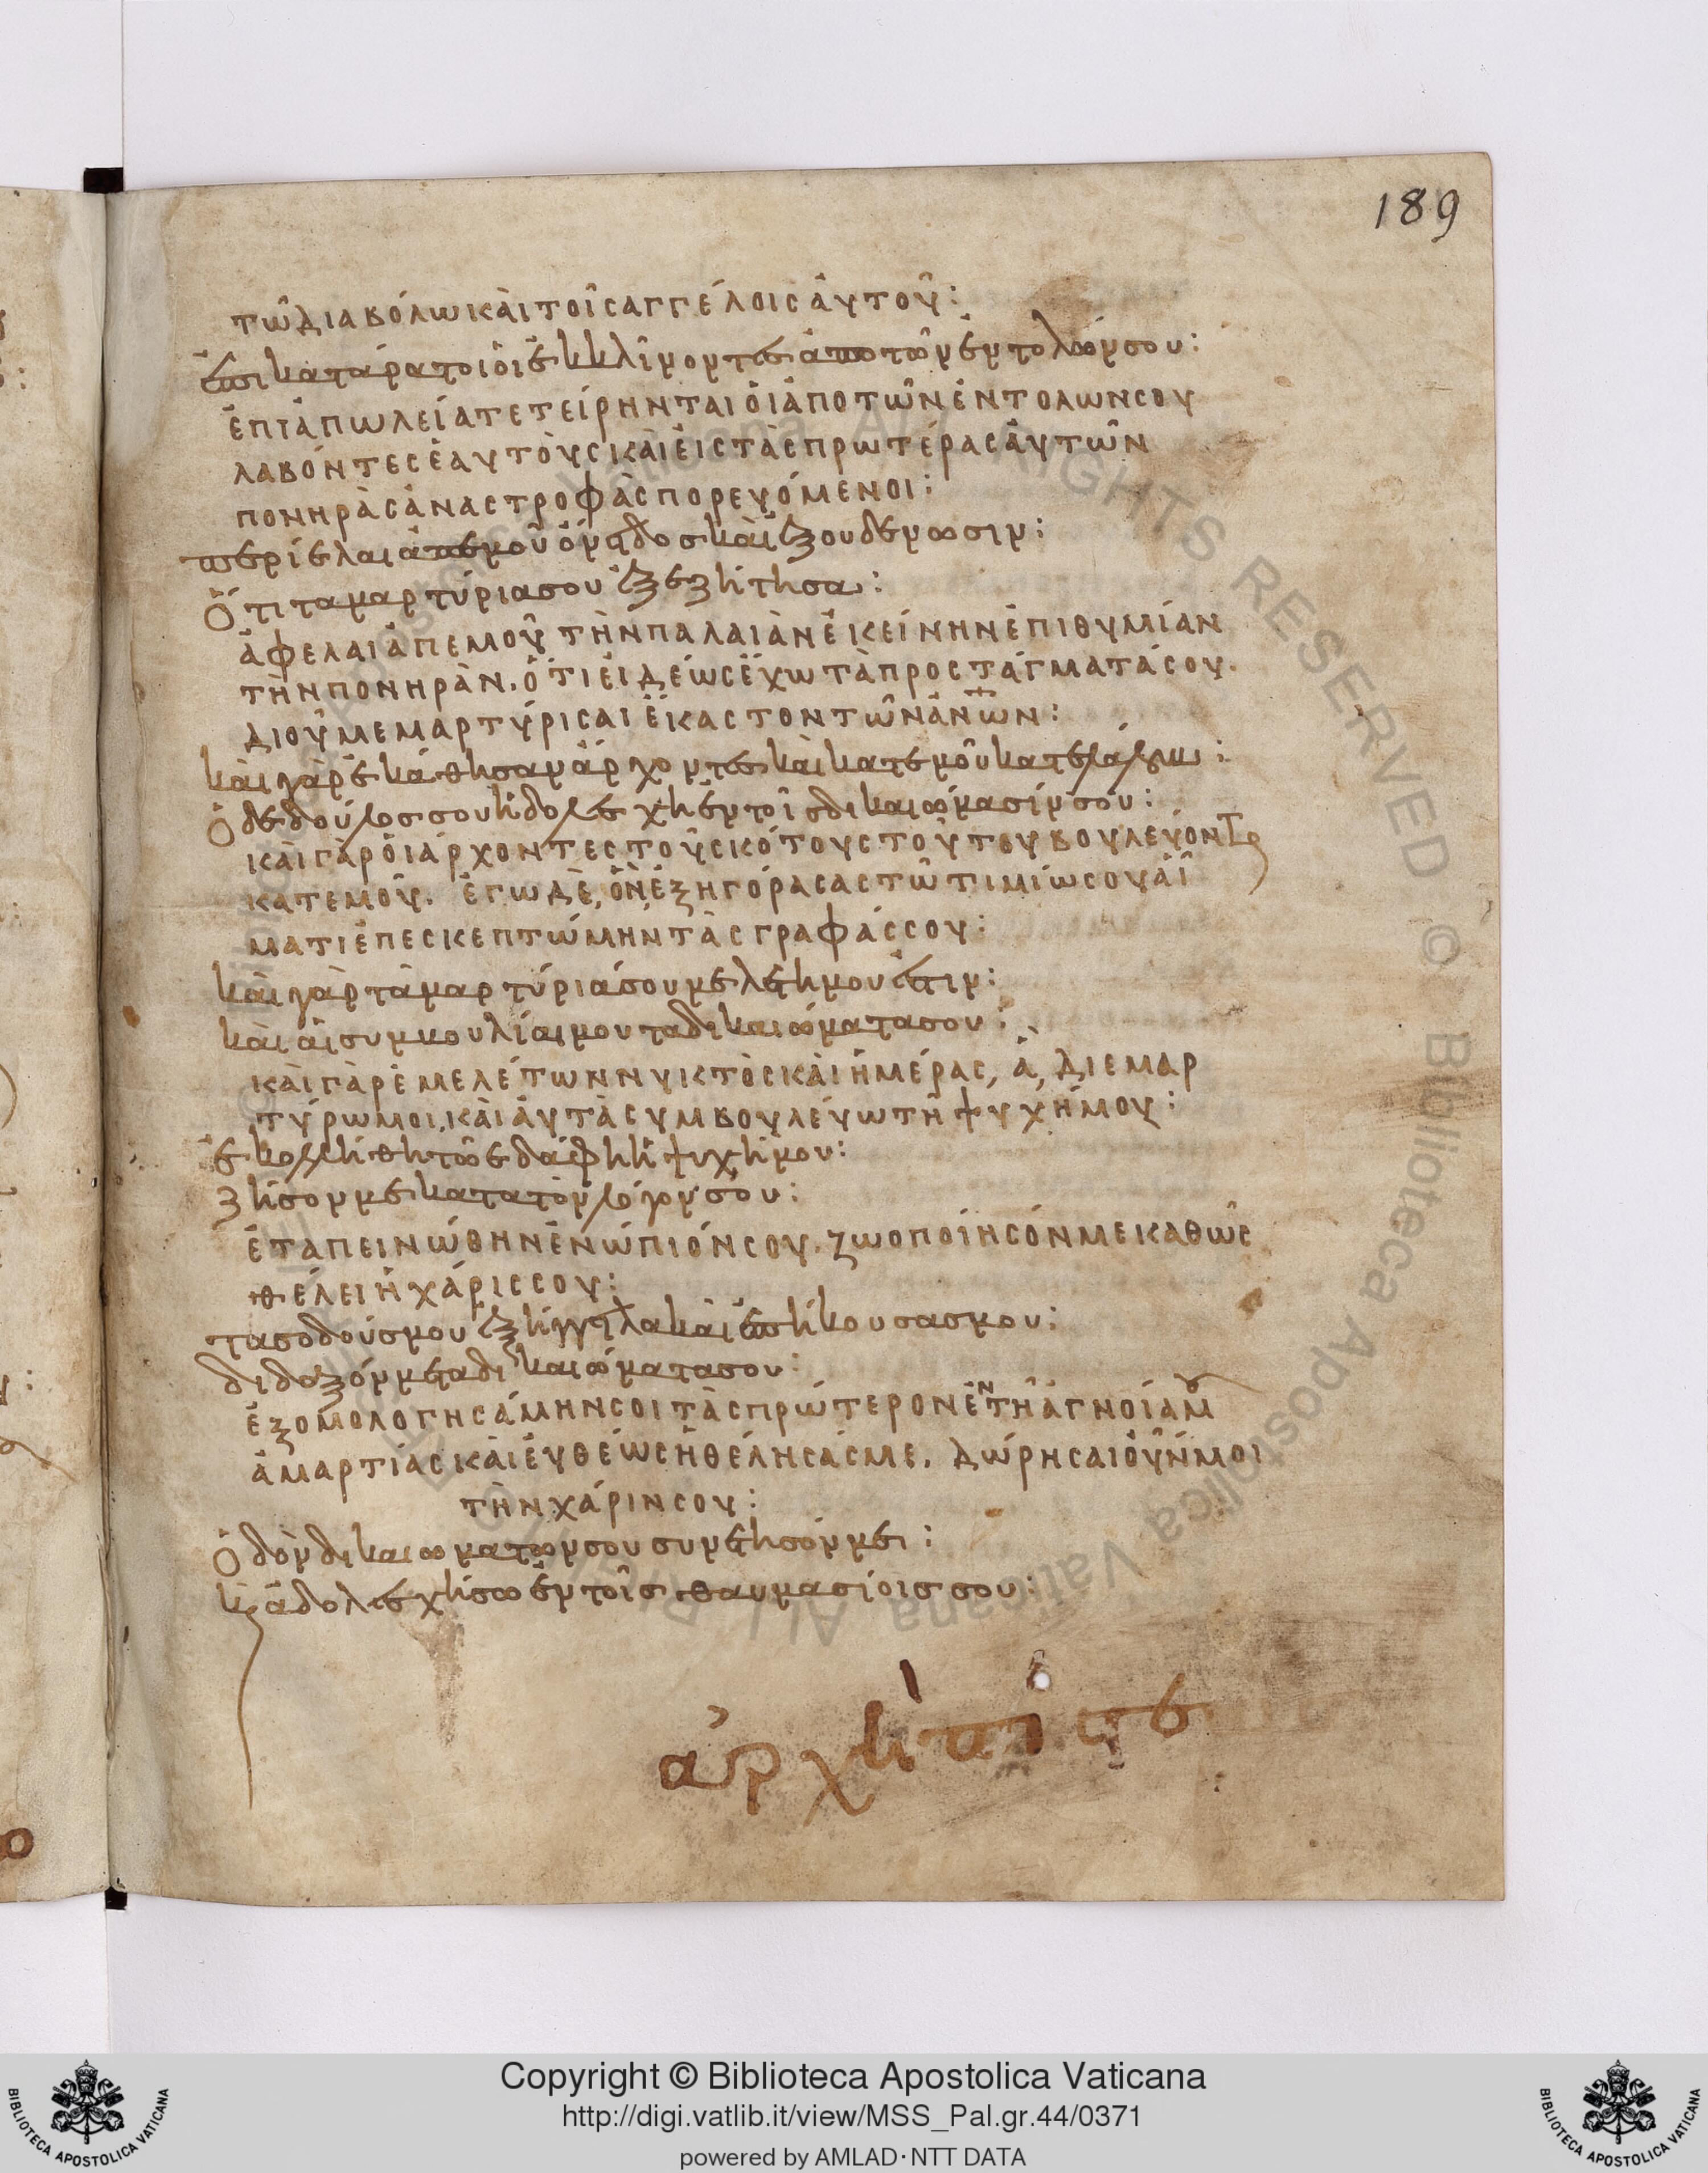 189
τῶ διαβόλω κὰι τοῖς αγγέλοις ἀυτοῦ:
ἐπικατάρατοι ὁι ἐκκλίνοντες ἀπο τῶν ἐντολῶν σου:
ἐπι ἀπωλεία τετείρηνται ὁι ἀπο τῶν ἐντολων σου
λαβόντες ἑαυτὸυς κὰι ἐις τὰς πρωτέρας ἀυτῶν
πονηρὰς ἀναστροφὰς πορευόμενοι:
περίελαι ἀπεμοῦ ὄνηδοσ κὰι ἐξουδενωσιν:
Ὅτι τα μαρτύρια σου ἐξεζήτησα:
ἀφελαι ἀπεμοῦ τὴν παλαιὰν ἐκείνην ἐπιθυμίαν
τὴν πονηρὰν. ὅτι ἐιδέως ἔχω τὰ προστάγματά σου.
διοῦ μεμαρτύρισαι ἕκαστον τῶν ἀν̅ων:
κὰι γὰρ ἐκάθησαν ἄρχοντες κὰι κατεμοῦ κατελάλουν:
Ὁ δε δούλοσ σου ἠδολεσχη ἐν τοῖσ δικαιώμασίν σου:
κὰι γὰρ ὁι ἄρχοντες τοῦ σκότους τούτου βουλεύοντ
κατεμοῦ. ἐγω δὲ, ὃν ἐξηγόρασας τῶ τιμίω σου ἁΐ
ματι ἐπεσκεπτώμην τὰς γραφάς σου:
κὰι γὰρ τὰ μαρτύριά σου μελέτη μου ἐστιν:
κὰι ἁι συμβουλίαι μου τα δικαιώματα σου:
κὰι γὰρ ἐμελέτων νυκτὸς κὰι ἡμέρας, ἁ, διεμαρ
τύρω μοι, κὰι ἀυτὰ συμβουλεύω τῆ ψυχή μου:
ἐκολλήθη τῶ εδάφη ἡ ψυχή μου:
ζήσον με κατα τὸν λόγον σου:
ἐταπεινώθην ἐνώπιόν σου. ζωοποίησόν με καθῶς
θέλει ἡ χάρις σου:
τασ οδούσ μου ἐξήγγηλα κὰι ἐπήκουσασ μου:
διδαξόν με τα δικαιώματα σου:
ἐξομολογησάμην σοι τὰς πρώτερον ἐν τῆ ἀγνοία μου
ἁμαρτίας κὰι ἐυθέως ἠθέλησάς με. δώρησαι ὀῦν μοι
τὴν χάριν σου:
Ὁδὸν δικαιωματων σου συνέτησόν με:
κ ἀδολεσχήσω ἐν τοῖσ θαυμασίοισ σου:
Copyright © Biblioteca Apostolica Vaticana
http://digi.vatlib.it/view/MSS_Pal.gr.44/0371
powered by AMLAD·NTT DATA
BIBLIOTECA APOSTOLICA VATICANA
BIBLIOTECA APOSTOLICA VATICANA